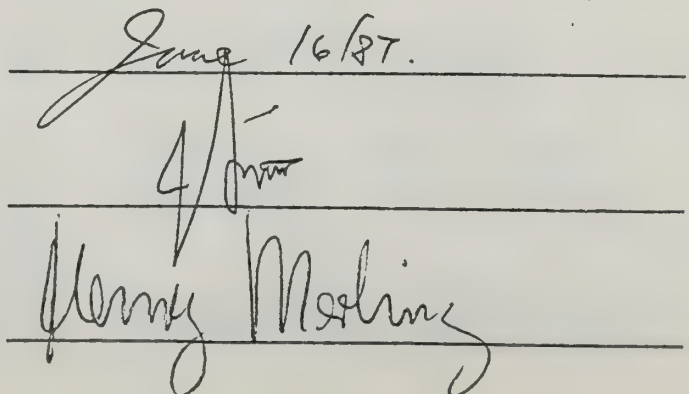 June 16/87.
Henny Merling